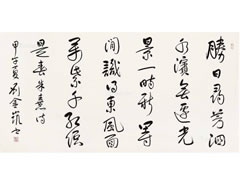 勝日尋芳泗
水濱無邊光
景一時新等
閒識得東風面
萬紫千紅總
是春朱熹詩
夏劉書